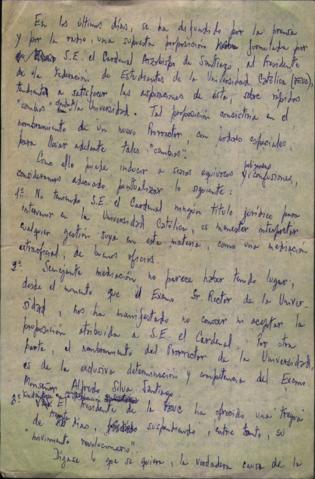 En los últimos días, se ha difundido por la prensa
y por la radio, una supuesta proposición formulada por
S.E. el Cardenal Arzobispo de Santiago, al Presidente
de la Federación de Estudiantes de la Universidad Católica (FEUC),
tendiente a satisfacer las aspiraciones de ésta, sobre rápidos
"cambios" en la Universidad. Tal proposición consistiría en el
nombramiento de un nuevo Prorrector con poderes especiales
para llevar adelante tales "cambios".
Como ello puede inducir a serios equívocos y confusiones,
consideramos adecuado puntualizar lo siguiente:
1º No teniendo S.E. el Cardenal ningún título jurídico para
intervenir en la Universidad Católica, es menester interpretar
cualquier gestión suya en esta materia, como una mediación
extraoficial, de buenos oficios.
2º Semejante mediación no parece haber tenido lugar,
desde el momento que el Excmo Sr Rector de la Univer
sidad, nos ha manifestado no conocer ni aceptar la
proposición atribuida a S.E. el Cardenal. Por otra
parte, el nombramiento del Prorrector de la Universidad,
es de la exclusiva determinación y competencia del Excmo
Monseñor Alfredo Silva Santiago.
3º El Presidente de la FEUC ha ofrecido una tregua
de días, suspendiendo, entre tanto, su
"movimiento revolucionario".
Dígase lo que se quiera, la verdadera causa de la